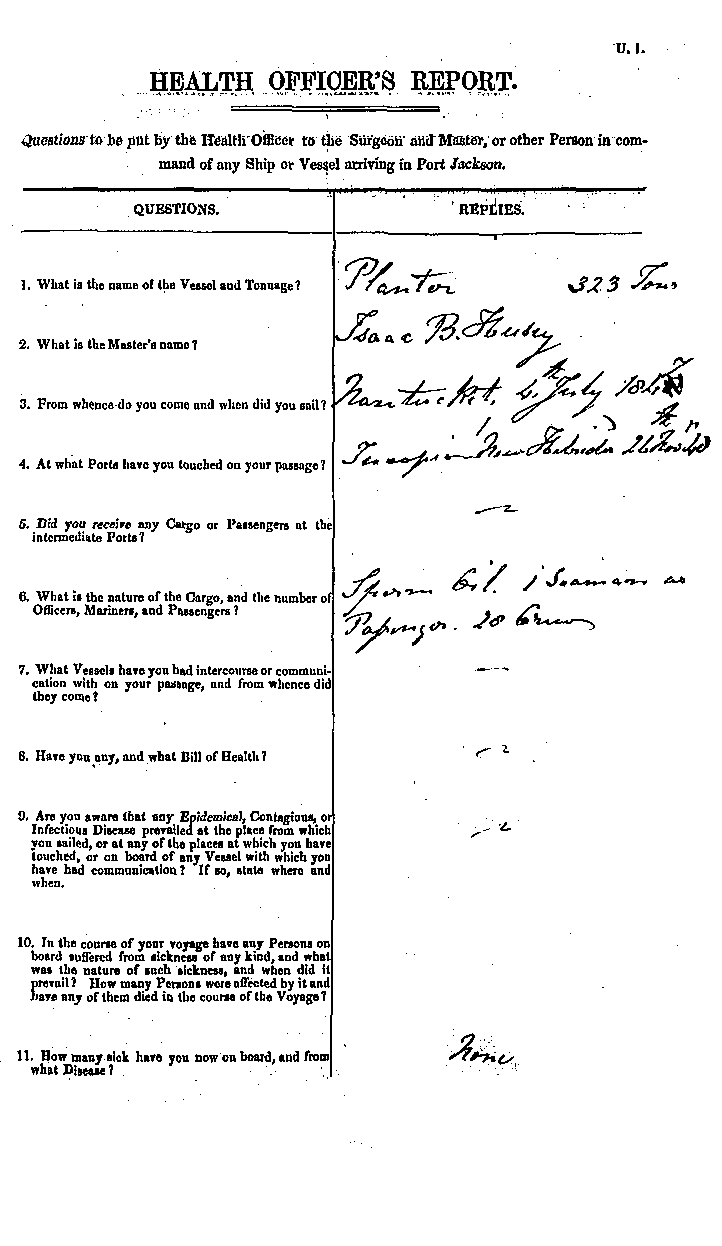 U. 1.
HEALTH OFFICER'S REPORT.
Questions to be put by the Health Officer to the Surgeon and Master, or other Person in com-
mand of any Ship or Vessel arriving in Port Jackson.
QUESTIONS.
REPLIES.
1. What is the name of the Vessel and Tonnage?
Planter 323 Tons
2. What is the Master's name?
Isaac B. Hussey
3. From whence do you come and when did you sail?
Nantucket, 4th July 1847
4. At what Ports have you touched on your passage?
New Hebrides 26th Nov
5. Did you receive any Cargo or Passengers at the
intermediate Ports?
6. What is the nature of the Cargo, and the number of
Officers, Mariners, and Passengers?
Sperm Oil. 1 Seaman as
Passenger. 28 Crew
7. What Vessels have you had intercourse or communi-
cation with on your passage, and from whence did
they come?
8. Have you any, and what Bill of Health?
9. Are you aware that any Epidemical, Contagious, or
Infectious Disease prevailed at the place from which
you sailed, or at any of the places at which you have
touched, or on board of any Vessel with which you
have had communication? If so, state where and
when.
10. In the course of your voyage have any Persons on
board suffered from sickness of any kind, and what
was the nature of such sickness, and when did it
prevail? How many Persons were affected by it and
have any of them died in the course of the Voyage?
11. How many sick have you now on board, and from
what Disease?
None